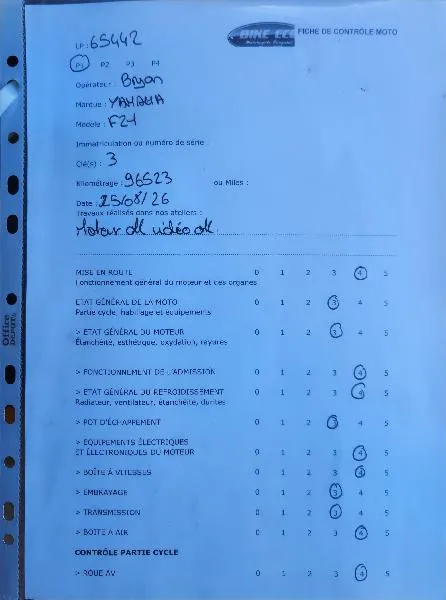 LP : 65442
BIKE-ECO
FICHE DE CONTRÔLE MOTO
P1 P2 P3 P4
Opérateur : Bryan
Marque : YAMAHA
Modèle : FZ1
Immatriculation ou numéro de série :
Clé(s) : 3
Kilométrage : 96523 ou Miles :
Date : 25/08/26
Travaux réalisés dans nos ateliers :
Moteur ok vidéo ok
MISE EN ROUTE 0 1 2 3 4 5
Fonctionnement général du moteur et des organes
ETAT GÉNÉRAL DE LA MOTO 0 1 2 3 4 5
Partie cycle, habillage et équipements
> ETAT GÉNÉRAL DU MOTEUR 0 1 2 3 4 5
Étanchéité, esthétique, oxydation, rayures
> FONCTIONNEMENT DE L'ADMISSION 0 1 2 3 4 5
> ETAT GÉNÉRAL DU REFROIDISSEMENT 0 1 2 3 4 5
Radiateur, ventilateur, étanchéité, durites
> POT D'ÉCHAPPEMENT 0 1 2 3 4 5
> ÉQUIPEMENTS ÉLECTRIQUES
ET ÉLECTRONIQUES DU MOTEUR 0 1 2 3 4 5
> BOÎTE À VITESSES 0 1 2 3 4 5
> EMBRAYAGE 0 1 2 3 4 5
> TRANSMISSION 0 1 2 3 4 5
> BOITE A AIR 0 1 2 3 4 5
CONTRÔLE PARTIE CYCLE
> ROUE AV 0 1 2 3 4 5
Office DEPOT